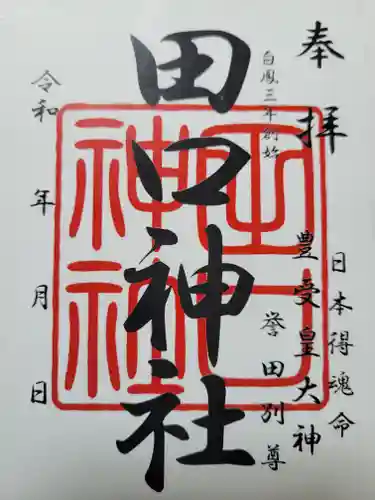 奉拝
白鳳三年創始
日本得魂命
豊受皇大神
誉田別尊
田口神社
田口神社
令和 年 月 日